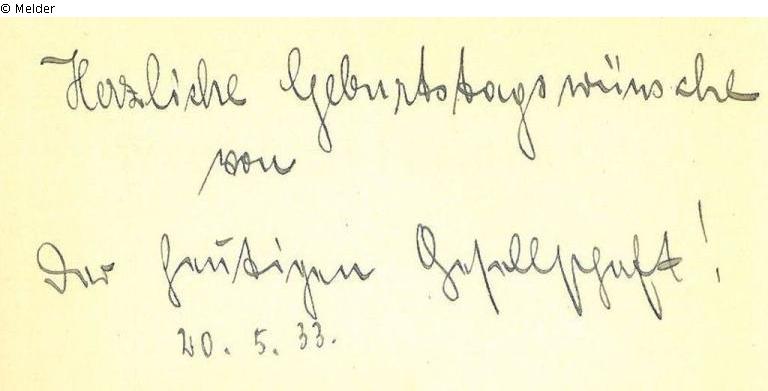 © Melder
Herzliche Geburtstagswünsche
von
der heutigen Gesellschaft!
20. 5. 33.